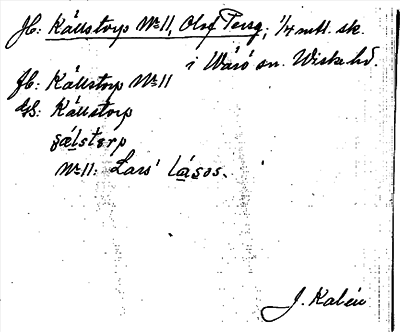 Jb: Källstorp No 11, Olof Persg, 1/4 mtl. sk.
i Wärö sn. Wiske hd.
Jb: Källstorp No 11
GS: Källstorp
sælstorp
No 11: Lars' låsos.
J. Kalén